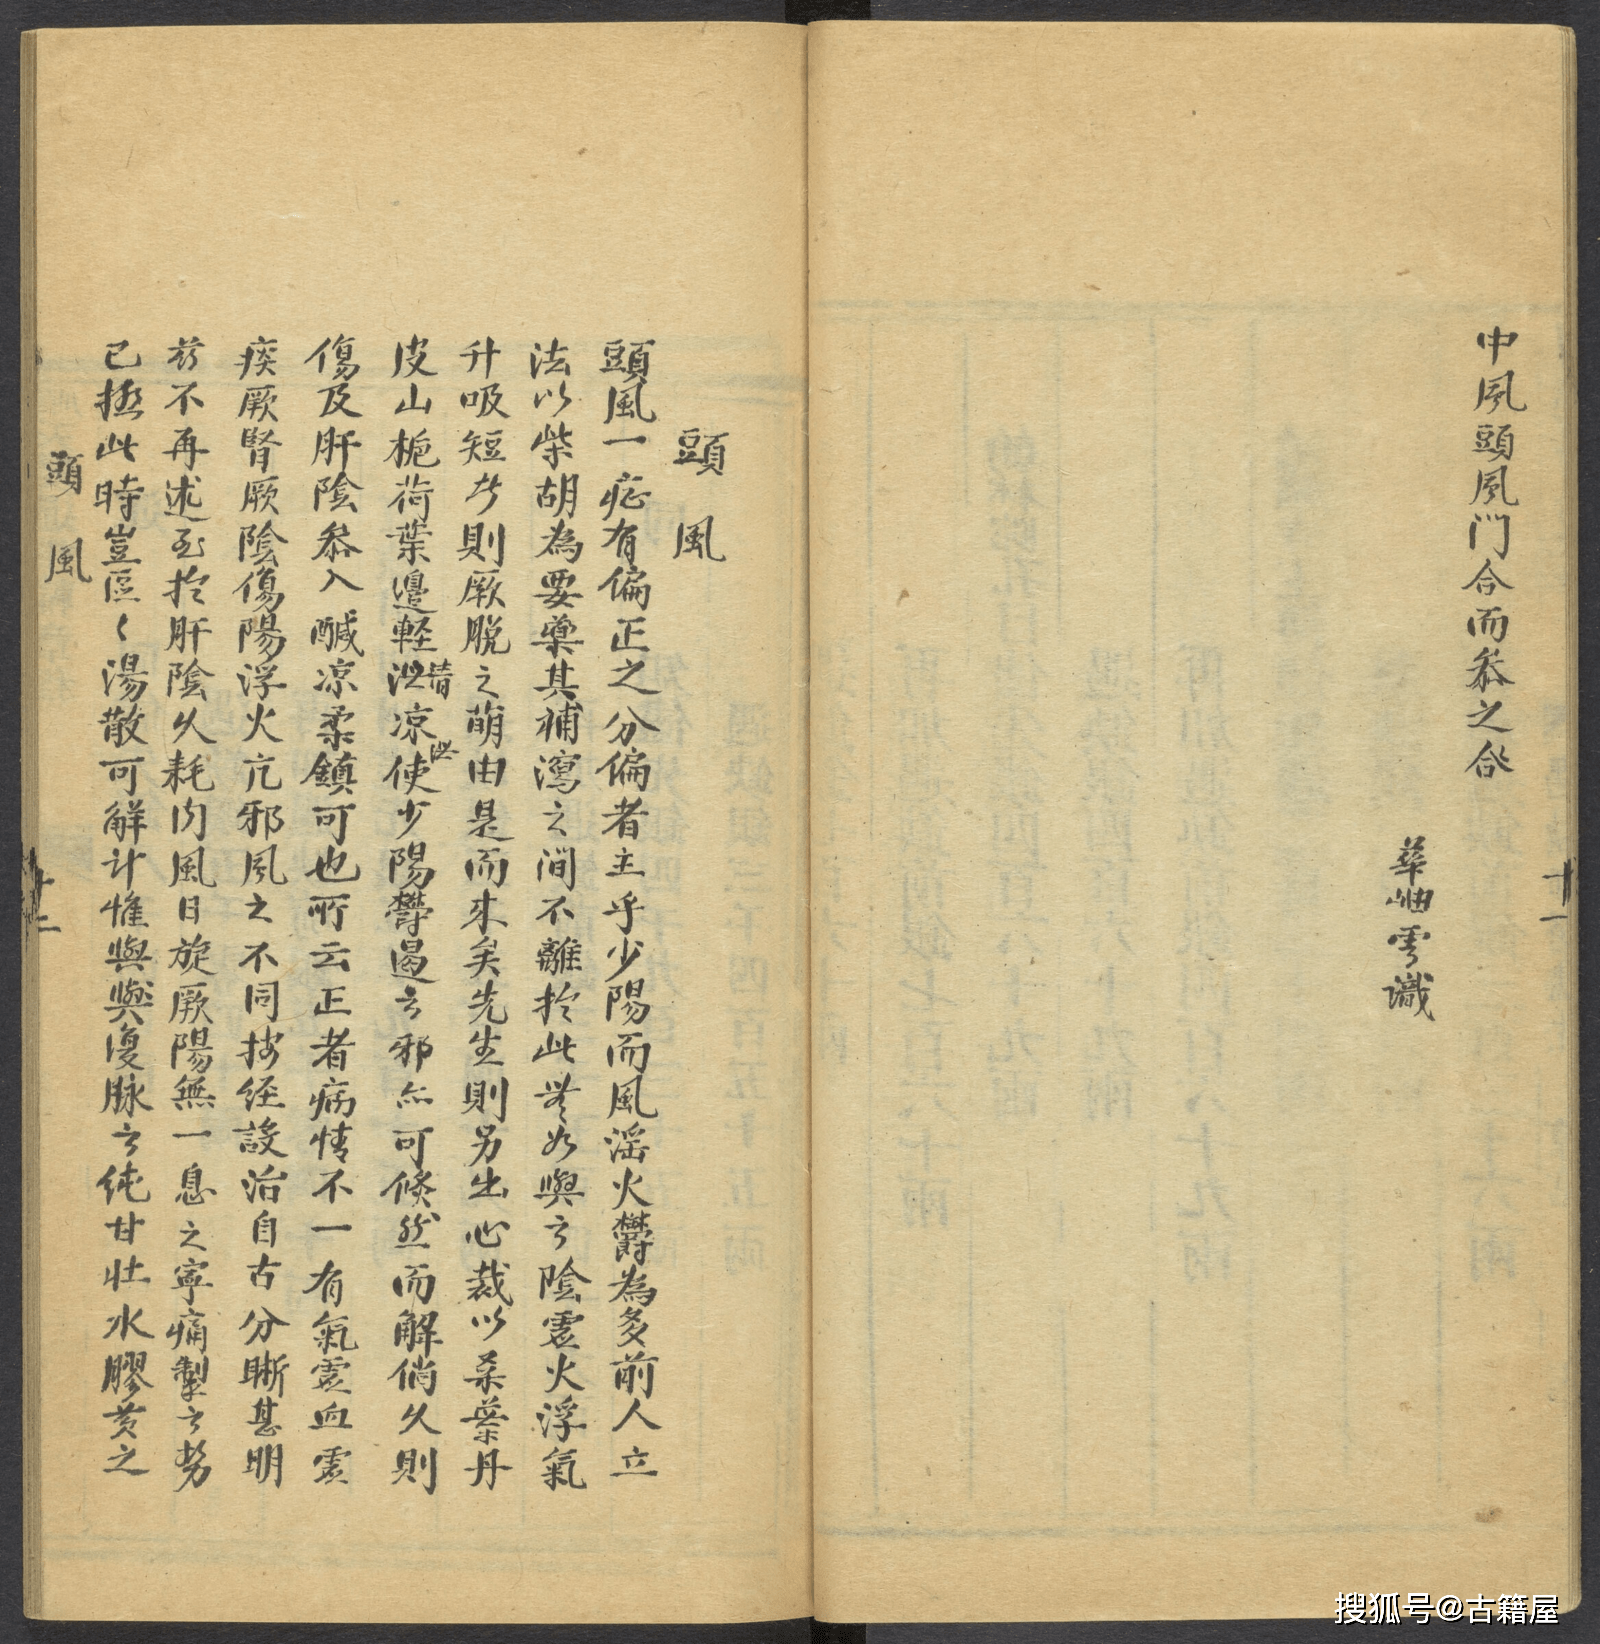 中風頭風門合而叅之合
華岫雲識
十一
頭風
頭風一症有偏正之分偏者主乎少陽而風滛火欝為多前人立
法以柴胡為要藥其補瀉之間不離於此無如與之陰虛火浮氣
升吸短者則厥脫之萌由是而来矣先生則另出心裁以桑葉丹
皮山梔荷葉邊輕清凉泄使少陽欝遏之邪亦可倏然而解倘久則
傷及肝陰叅入醎凉柔鎮可也所云正者病情不一有氣虛血虛
痰厥腎厥陰傷陽浮火亢邪風之不同按經設治自古分晣甚明
兹不再述至於肝陰久耗內風日旋厥陽無一息之寧痛掣之勢
已極此時豈區〻湯散可解計惟與復脉之純甘壯水膠黃之
頭風
十二
搜狐号@古籍屋